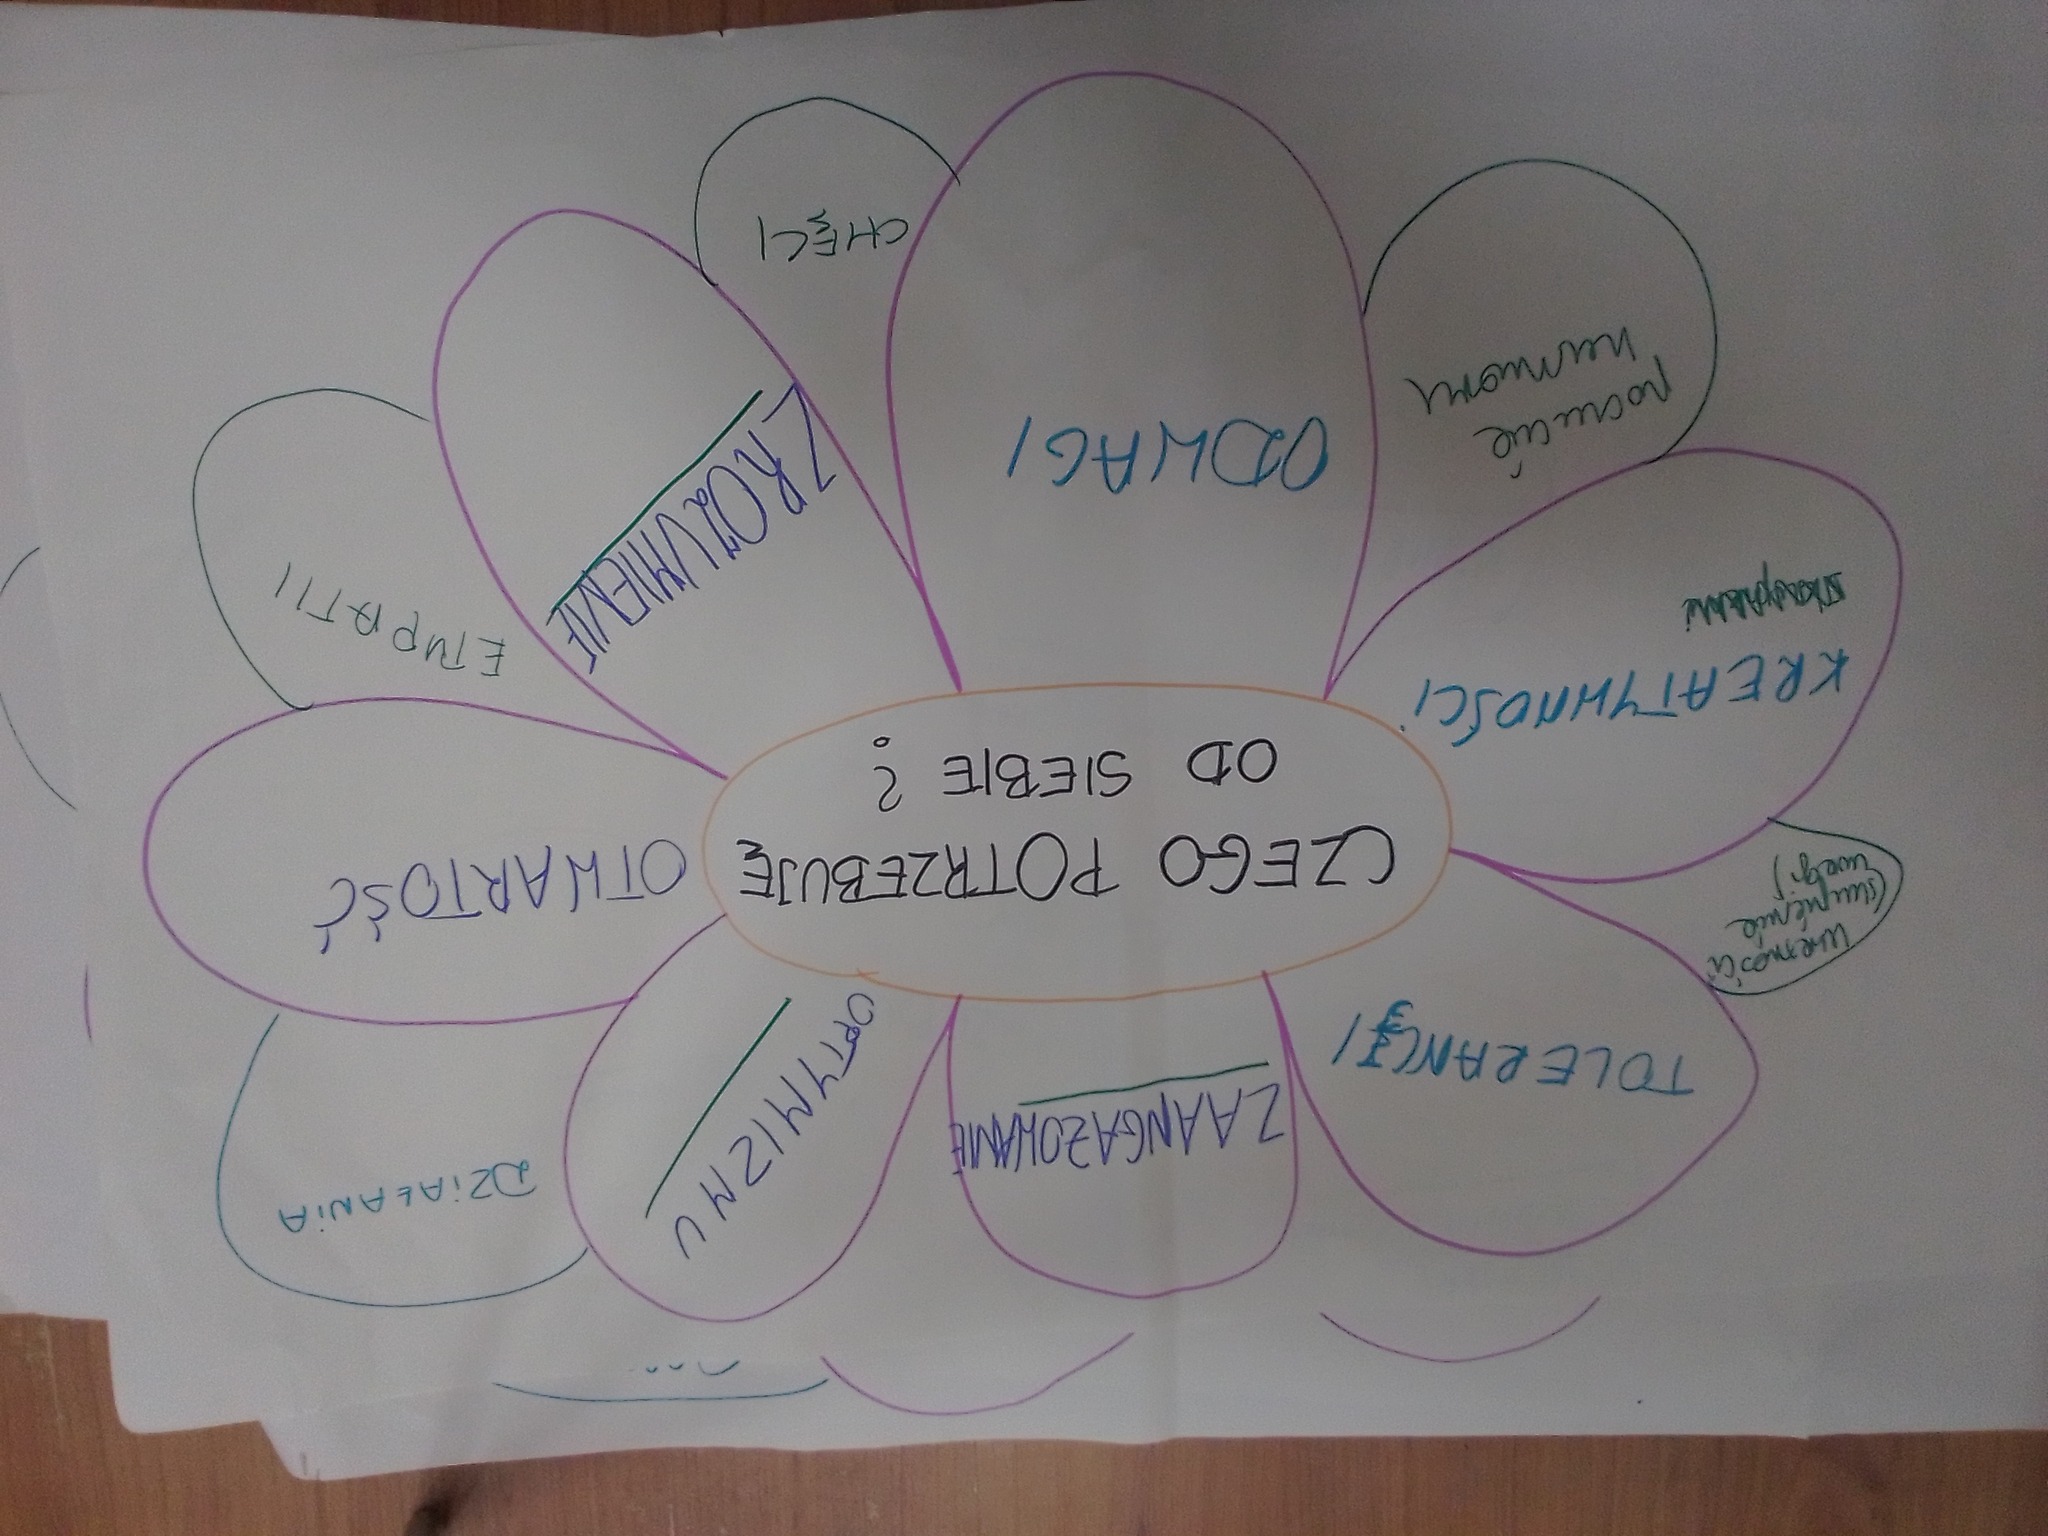 CZEGO POTRZEBUJĘ
OD SIEBIE?
ZAANGAZOWANIE
OPTYMIZMU
DZIAŁANIA
OTWARTOŚĆ
EMPATII
ZROZUMIENIE
CHĘCI
ODWAGI
poczucie
humoru
KREATYWNOŚCI
uważności
(skupienie
uwagi)
TOLERANCJI